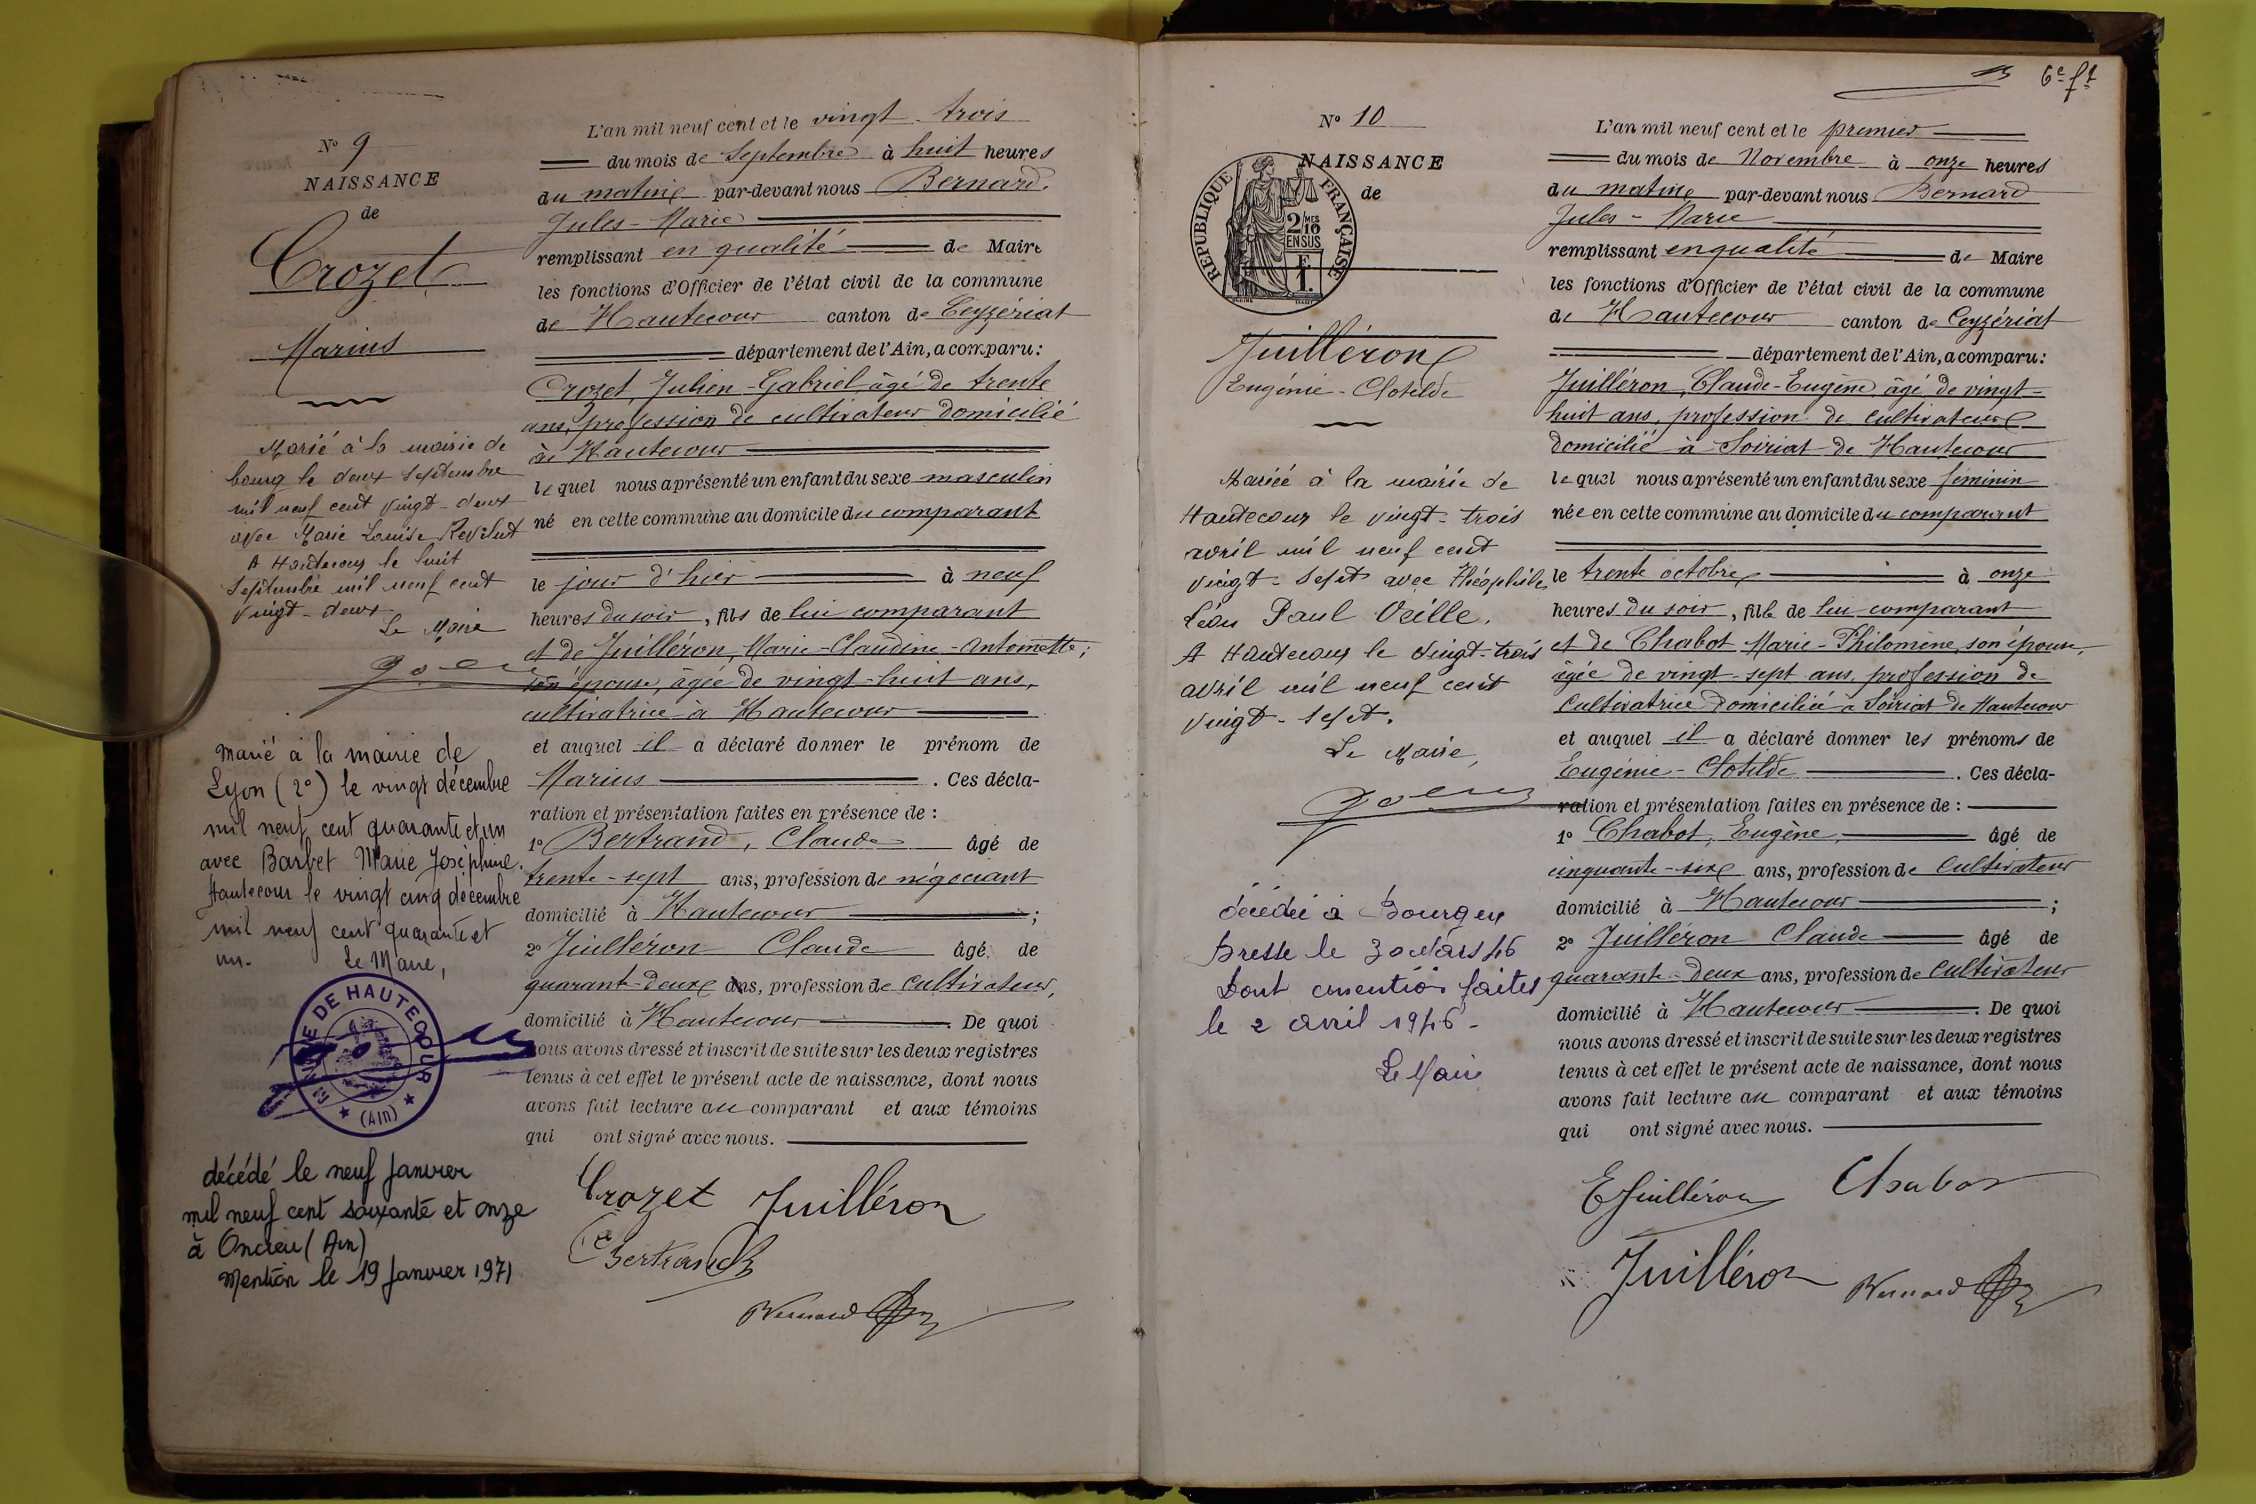 N° 9
NAISSANCE
de
Crozet
Marius
Marié à la mairie de
bourg le deux Septembre
mil neuf cent vingt-deux
avec Marie Louise Revilut
A Hautecour le huit
Septembre mil neuf cent
vingt-deux
Le Maire
Marié à la mairie de
Lyon (2°) le vingt décembre
mil neuf cent quarante et un
avec Barbet Marie Joséphine.
Hautecour le vingt cinq décembre
mil neuf cent quarante et
un. Le Maire,
MAIRIE DE HAUTECOUR
(AIN)
décédé le neuf Janvier
mil neuf cent soixante et onze
à Oncieu (Ain)
Mention le 19 Janvier 1971
L'an mil neuf cent et le vingt-trois
du mois de Septembre à huit heures
du matin par-devant nous Bernard
Jules-Marie
remplissant en qualité de Maire
les fonctions d'Officier de l'état civil de la commune
de Hautecour canton de Ceyzériat
département de l'Ain, a comparu:
Crozet, Julien-Gabriel âgé de trente
ans, profession de cultivateur domicilié
à Hautecour
lequel nous a présenté un enfant du sexe masculin
né en cette commune au domicile du comparant
le jour d'hier à neuf
heures du soir, fils de lui comparant
et de Juilléron, Marie-Claudine-Antoinette;
son épouse, âgée de vingt-huit ans,
cultivatrice à Hautecour
et auquel il a déclaré donner le prénom de
Marius. Ces décla-
ration et présentation faites en présence de :
1° Bertrand, Claude âgé de
trente-sept ans, profession de négociant
domicilié à Hautecour ;
2° Juilléron Claude âgé de
quarant-deux ans, profession de cultivateur,
domicilié à Hautecour. De quoi
nous avons dressé et inscrit de suite sur les deux registres
tenus à cet effet le présent acte de naissance, dont nous
avons fait lecture au comparant et aux témoins
qui ont signé avec nous.
Crozet Juilléron
Bertrand
Bernard
6e ft
N° 10
NAISSANCE
de
REPUBLIQUE FRANÇAISE
2/10 MES
EN SUS
F
1.
Juilléron
Eugénie-Clotilde
Mariée à la mairie de
Hautecour le vingt-trois
avril mil neuf cent
vingt-sept avec Théophile
Léon Paul Veille.
A Hautecour le vingt-trois
avril mil neuf cent
vingt-sept.
Le Maire,
décédée à Bourg en
Bresse le 30 Mars 46
Dont mention faites
le 2 avril 1946-
Le Maire
L'an mil neuf cent et le premier
du mois de Novembre à onze heures
du matin par-devant nous Bernard
Jules-Marie
remplissant en qualité de Maire
les fonctions d'Officier de l'état civil de la commune
de Hautecour canton de Ceyzériat
département de l'Ain, a comparu:
Juilléron, Claude-Eugène âgé de vingt-
huit ans, profession de cultivateur
domicilié à Soiriat de Hautecour
lequel nous a présenté un enfant du sexe féminin
née en cette commune au domicile du comparant
le trente octobre à onze
heures du soir, fille de lui comparant
et de Chabot Marie-Philomène, son épouse,
âgée de vingt-sept ans, profession de
cultivatrice domiciliée à Soiriat de Hautecour
et auquel il a déclaré donner les prénoms de
Eugénie-Clotilde. Ces décla-
ration et présentation faites en présence de :
1° Chabot, Eugène, âgé de
cinquante-six ans, profession de cultivateur
domicilié à Hautecour ;
2° Juilléron Claude âgé de
quarante-deux ans, profession de cultivateur
domicilié à Hautecour. De quoi
nous avons dressé et inscrit de suite sur les deux registres
tenus à cet effet le présent acte de naissance, dont nous
avons fait lecture au comparant et aux témoins
qui ont signé avec nous.
E Juilléron Chabot
Juilléron Bernard